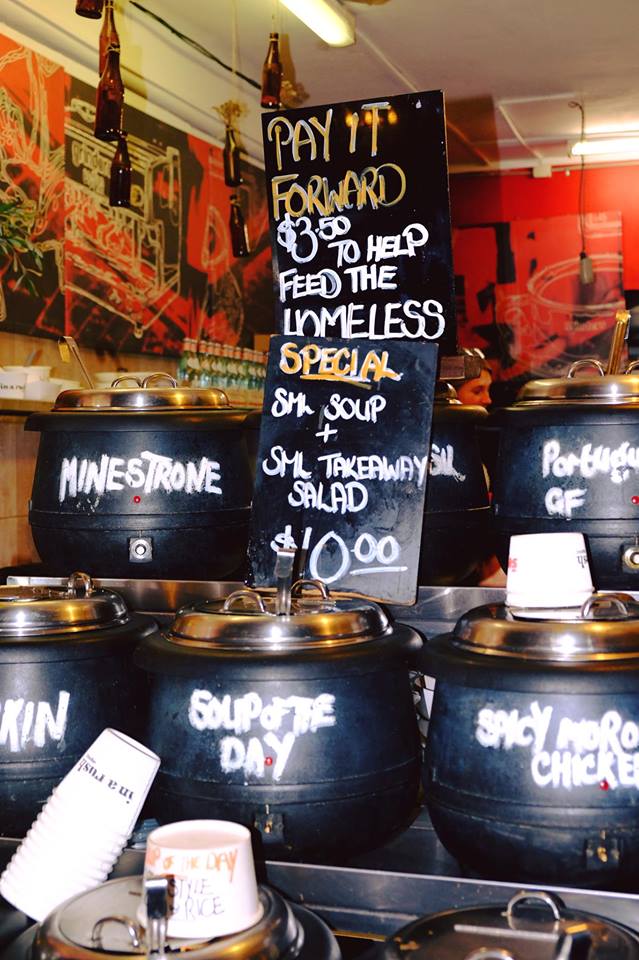 PAY IT
FORWARD
$3.50
TO HELP
FEED THE
HOMELESS
SPECIAL
SML SOUP
+
SML TAKEAWAY
SALAD
$10.00
MINESTRONE
SIL
Portugu
GF
KIN
SOUP OF THE
DAY
SPICY MORO
CHICKE
in a rush
UP OF THE DAY
STYLE
RICE